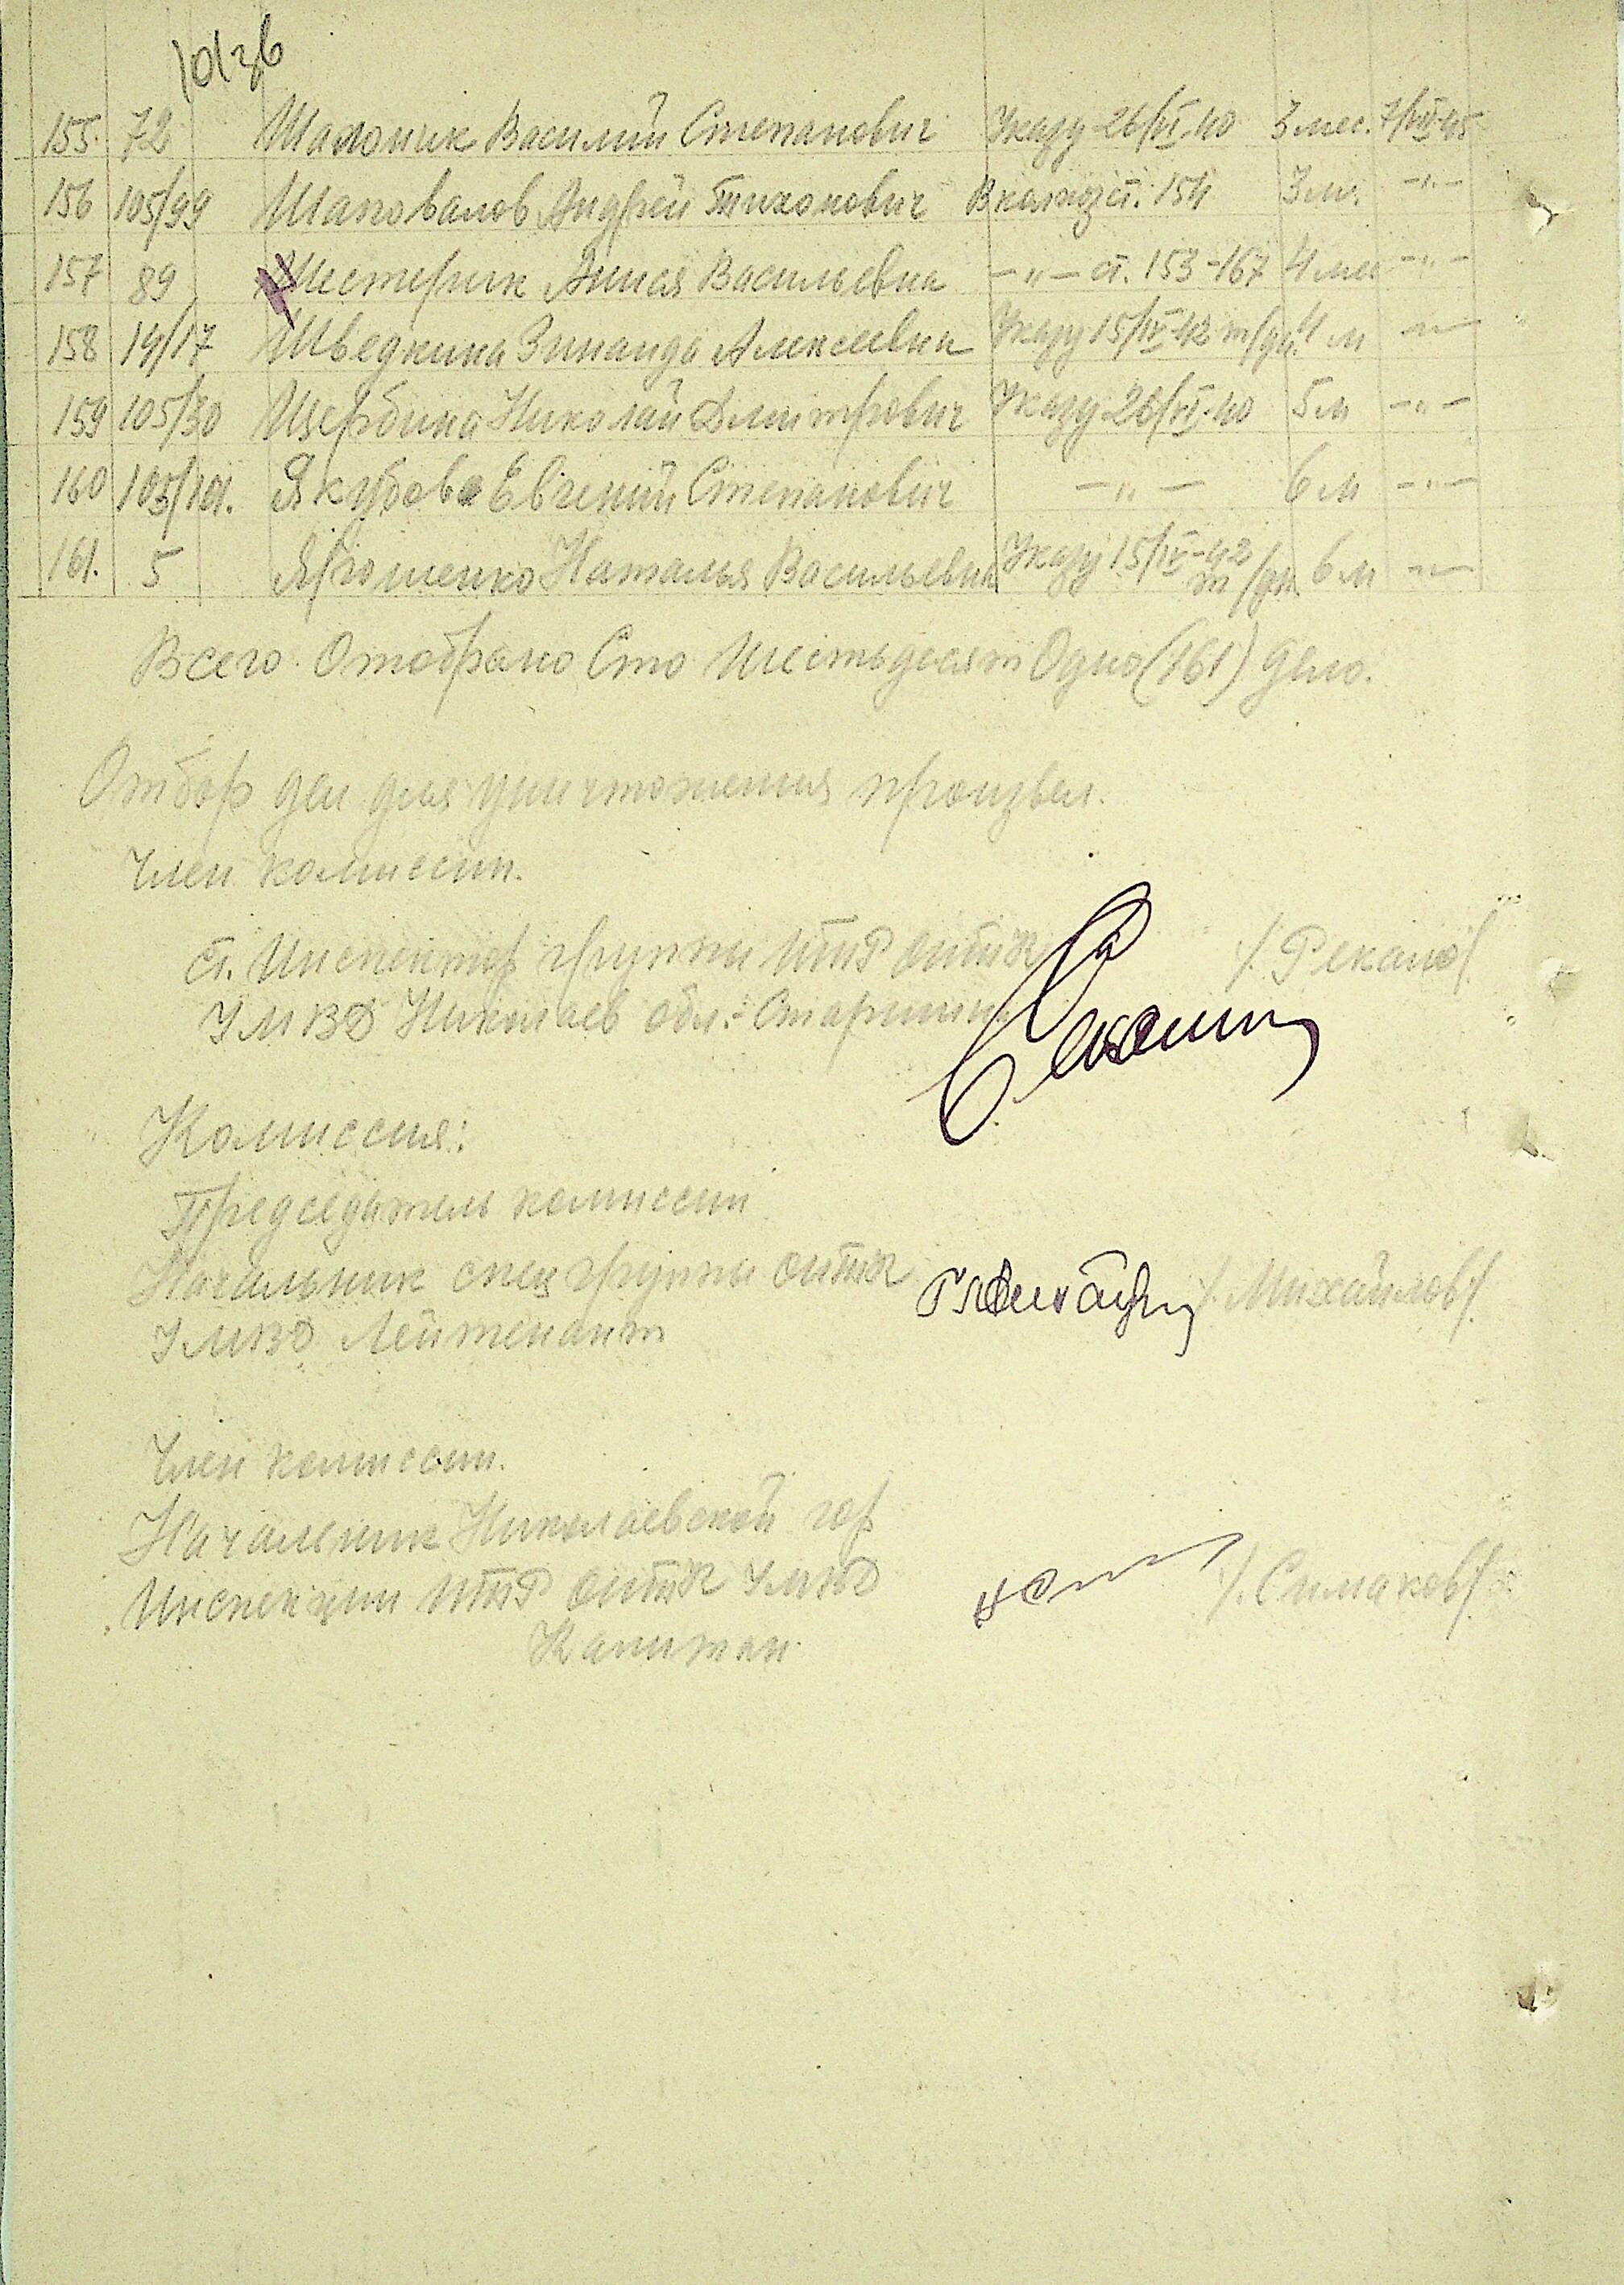 155. 72 Шалоник Василий Степанович Указу 26/VI-40 3 мес. 7/VII-45
156 105/99 Шаповалов Андрей Тихонович В колхоз ст. 154 3 м. -"-
157 89 Шестерик Анися Васильевна -"- ст. 153-167 4 мес -"-
158 14/17 Шведкина Зинаида Алексеевна Указу 15/IV-42 т/дн. 4 м -"-
159 105/30 Щербина Николай Дмитрович Указу 26/VI-40 5 м -"-
160 105/101. Якубов Евгений Степанович -"- 6 м -"-
161. 5 Ярошенко Наталья Васильевна Указу 15/IV-42 т/дн. 6 м -"-
Всего Отобрано Сто Шестьдесят Одно (161) дело.
Отбор дел для уничтожения произвел.
Член комиссии.
ст. Инспектор группы ИТР ОИТК
УМВД Николаев обл. - Старшина
Комиссия:
Председатель комиссии
Начальник спец группы ОИТК /Михайлов/.
УМВД Лейтенант
Член комиссии.
Начальник Николаевской гор
Инспекции ИТР ОИТК УМВД /.Симаков/
Капитан.